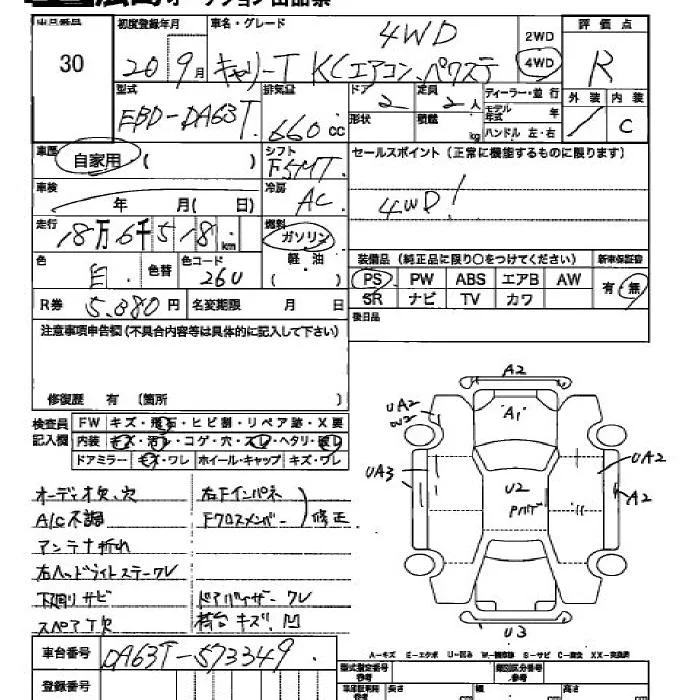 広島オークション出品票
出品番号 初度登録年月 車名・グレード 評価点
30 20年9月 キャリーT KCエアコン、パワステ 4WD 2WD 4WD R
型式 排気量 ドア 定員 ディーラー・並行 外装 内装
EBD-DA63T 660cc 2 2人 モデル年式 年 / C
形状 積載 kg ハンドル 左・右
車歴 自家用 ( ) シフト F5MT セールスポイント(正常に機能するものに限ります)
車検 年 月( 日) 冷房 AC 4WD!
走行 18万6千518km 燃料 ガソリン 軽油
装備品(純正品に限り○をつけてください) 新車保証書
色 白 色替 色コード 26U PS PW ABS エアB AW 有・無
SR ナビ TV カワ
R券 5,880円 名変期限 月 日 後日品
注意事項申告欄(不具合内容等は具体的に記入して下さい)
修復歴 有 (箇所 )
検査員記入欄 FW キズ・飛石・ヒビ割・リペア跡・X要
内装 キズ・汚レ・コゲ・穴・スレ・ヘタリ・破レ
ドアミラー キズ・ワレ ホイール・キャップ キズ・ワレ
A2
A1
UA2
W2
UA3
U2
UA2
A2
U3
オーディオ欠、穴 右下インパネ
A/C不調 Fクロスメンバー 修正
アンテナ折れ
右ヘッドライトステーワレ
下廻りサビ ドアバイザーワレ
スペアT欠 荷台キズ、凹
A-キズ E-エクボ U-凹み S-サビ C-腐食 XX-交換済
車台番号 DA63T-573349
型式指定番号 参考 類別区分番号 参考
登録番号 長さ 幅 高さ